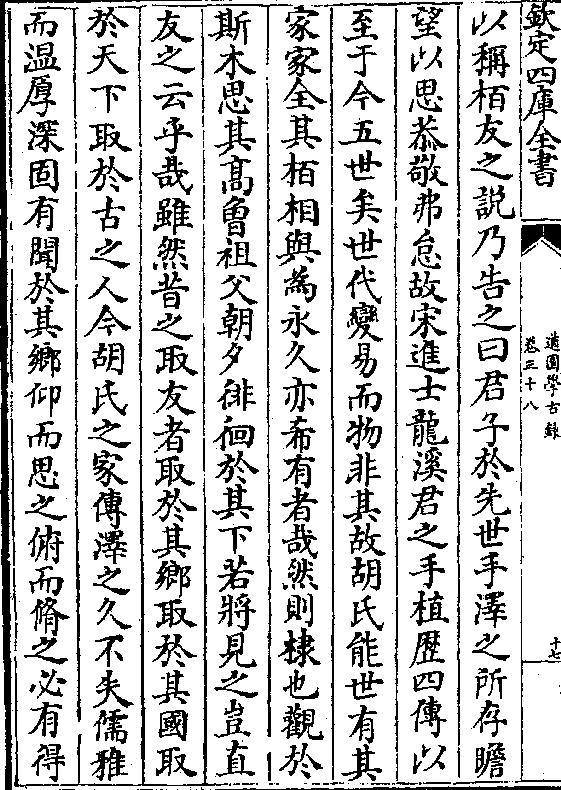 欽定四庫全書
道園學古録
卷三十八
十七
以稱栢友之説乃告之曰君子於先世手澤之所存瞻
望以思恭敬弗怠故宋進士龍溪君之手植歴四傳以
至于今五世矣世代變易而物非其故胡氏能世有其
家家全其栢相與為永久亦希有者哉然則棣也觀於
斯木思其髙魯祖父朝夕徘徊於其下若將見之豈直
友之云乎哉雖然昔之取友者取於其鄉取於其國取
於天下取於古之人今胡氏之家傳澤之久不失儒雅
而温厚深固有聞於其鄉仰而思之俯而脩之必有得